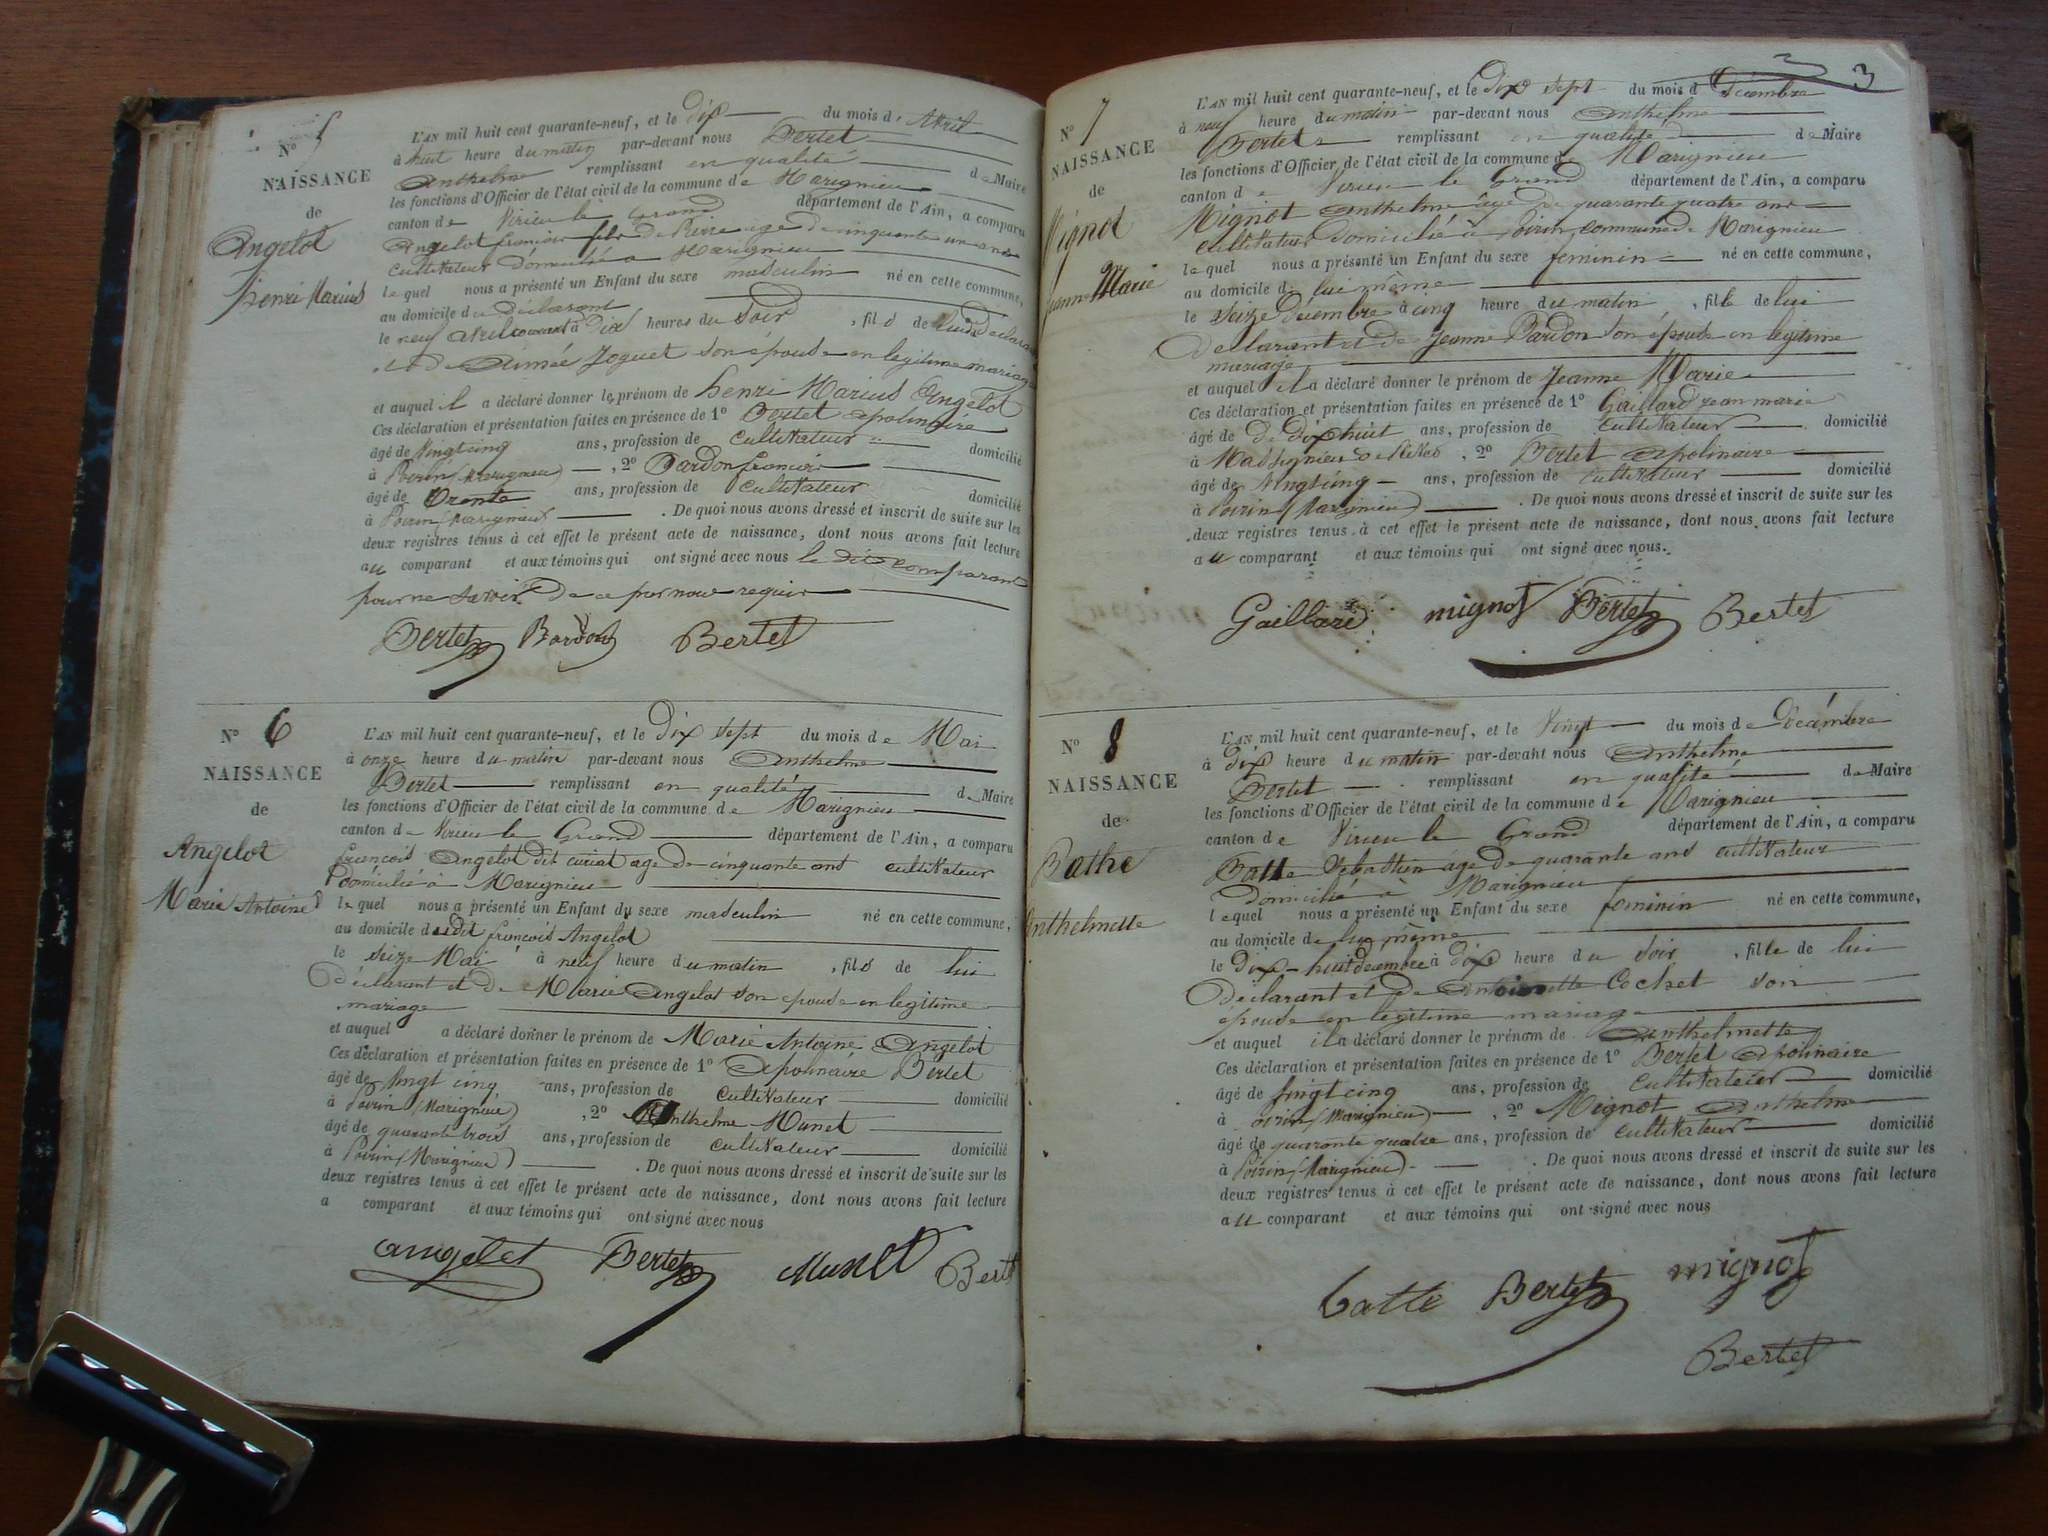 N° 5
NAISSANCE
de
Angelot
henri Marius
L'AN mil huit cent quarante-neuf, et le dix du mois d' Avril
à huit heure du matin par-devant nous Bertet
Anthelme remplissant en qualité de Maire
les fonctions d'Officier de l'état civil de la commune de Marignieu
canton de Virieu le Grand département de l'Ain, a comparu
Angelot françois fils de Pierre age de cinquante un ans
cultivateur domicilié a Marignieu
lequel nous a présenté un Enfant du sexe masculin né en cette commune,
au domicile du déclarant
le neuf avril courant à dix heures du Soir, fils de lui déclarant
et de Aimée Joguet son épouse en legitime mariage
et auquel il a déclaré donner le prénom de henri Marius Angelot
Ces déclaration et présentation faites en présence de 1° Bertet apolinaire
âgé de Vingt cinq ans, profession de cultivateur domicilié
à Poirin (Marignieu), 2° Bardon françois
âgé de trente ans, profession de cultivateur domicilié
à Poirin (Marignieu). De quoi nous avons dressé et inscrit de suite sur les
deux registres tenus à cet effet le présent acte de naissance, dont nous avons fait lecture
au comparant et aux témoins qui ont signé avec nous le dit comparant
pour ne savoir de ce par nous requis
Bertet Bardon Bertet
N° 6
NAISSANCE
de
Angelot
Marie Antoine
L'AN mil huit cent quarante-neuf, et le dix sept du mois de Mai
à onze heure du matin par-devant nous Anthelme
Bertet remplissant en qualité de Maire
les fonctions d'Officier de l'état civil de la commune de Marignieu
canton de Virieu le Grand département de l'Ain, a comparu
françois Angelot dit curiat age de cinquante ans cultivateur
domicilié à Marignieu
lequel nous a présenté un Enfant du sexe masculin né en cette commune,
au domicile dudit françois Angelot
le seize Mai à neuf heure du matin, fils de lui
déclarant et de Marie Angelot son epouse en legitime
mariage
et auquel a déclaré donner le prénom de Marie Antoine Angelot
Ces déclaration et présentation faites en présence de 1° Apolinaire Bertet
âgé de vingt cinq ans, profession de cultivateur domicilié
à Poirin (Marignieu), 2° Anthelme Munet
âgé de quarante trois ans, profession de cultivateur domicilié
à Poirin (Marignieu). De quoi nous avons dressé et inscrit de suite sur les
deux registres tenus à cet effet le présent acte de naissance, dont nous avons fait lecture
a comparant et aux témoins qui ont signé avec nous
angelot Bertet Munet Bertet
3
N° 7
NAISSANCE
de
Mignot
Jeanne Marie
L'AN mil huit cent quarante-neuf, et le dix sept du mois d Décembre
à neuf heure du matin par-devant nous Anthelme
Bertet remplissant en qualité de Maire
les fonctions d'Officier de l'état civil de la commune de Marignieu
canton de Virieu le Grand département de l'Ain, a comparu
Mignot Anthelme âgé de quarante quatre ans
cultivateur domicilié à Poirin, commune de Marignieu
lequel nous a présenté un Enfant du sexe feminin né en cette commune,
au domicile de lui même
le seize décembre à cinq heure du matin, fille de lui
déclarant et de Jeanne Bardon son épouse en legitime
mariage
et auquel il a déclaré donner le prénom de Jeanne Marie
Ces déclaration et présentation faites en présence de 1° Gaillard jean marie
âgé de dix huit ans, profession de cultivateur domicilié
à Massignieu de Rives, 2° Bertet apolinaire
âgé de vingt cinq ans, profession de cultivateur domicilié
à Poirin (Marignieu). De quoi nous avons dressé et inscrit de suite sur les
deux registres tenus à cet effet le présent acte de naissance, dont nous avons fait lecture
au comparant et aux témoins qui ont signé avec nous.
Gaillard mignot Bertet Bertet
N° 8
NAISSANCE
de
Bathe
Anthelmette
L'AN mil huit cent quarante-neuf, et le Vingt du mois de Décembre
à dix heure du matin par-devant nous Anthelme
Bertet remplissant en qualité de Maire
les fonctions d'Officier de l'état civil de la commune de Marignieu
canton de Virieu le Grand département de l'Ain, a comparu
Batte Sebastien âgé de quarante ans cultivateur
domicilié à Marignieu
lequel nous a présenté un Enfant du sexe feminin né en cette commune,
au domicile de lui même
le dix-huit decembre à dix heure du soir, fille de lui
déclarant et de Antoinette Cochet son
épouse en legitime mariage
et auquel il a déclaré donner le prénom de Anthelmette
Ces déclaration et présentation faites en présence de 1° Bertet apolinaire
âgé de vingt cinq ans, profession de cultivateur domicilié
à Poirin (Marignieu), 2° Mignot Anthelme
âgé de quarante quatre ans, profession de cultivateur domicilié
à Poirin (Marignieu). De quoi nous avons dressé et inscrit de suite sur les
deux registres tenus à cet effet le présent acte de naissance, dont nous avons fait lecture
au comparant et aux témoins qui ont signé avec nous
batte Bertet mignot
Bertet